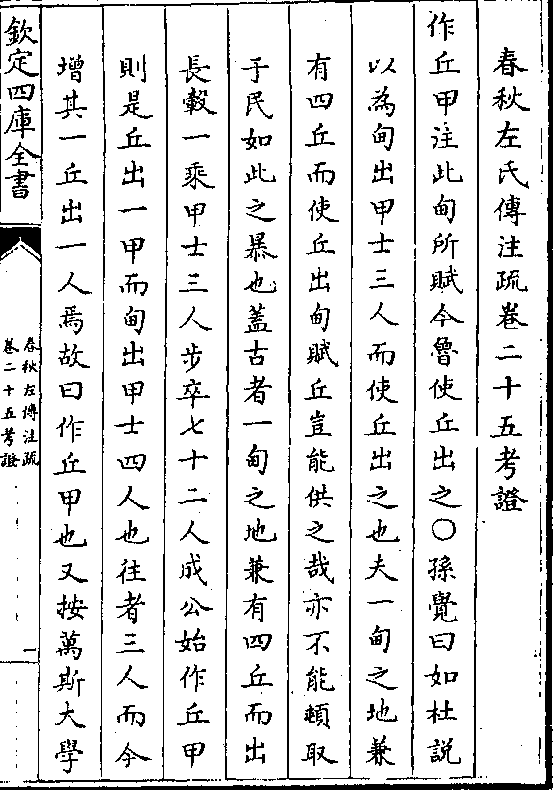 春秋左氏傳注疏卷二十五考證
作丘甲注此甸所賦今魯使丘出之〇孫覺曰如杜説
以為甸出甲士三人而使丘出之也夫一甸之地兼
有四丘而使丘出甸賦丘豈能供之哉亦不能頓取
于民如此之暴也蓋古者一甸之地兼有四丘而出
長轂一乘甲士三人步卒七十二人成公始作丘甲
則是丘出一甲而甸出甲士四人也往者三人而今
增其一丘出一人焉故曰作丘甲也又按萬斯大學
欽定四庫全書
春秋左傳注疏
卷二十五考證
一